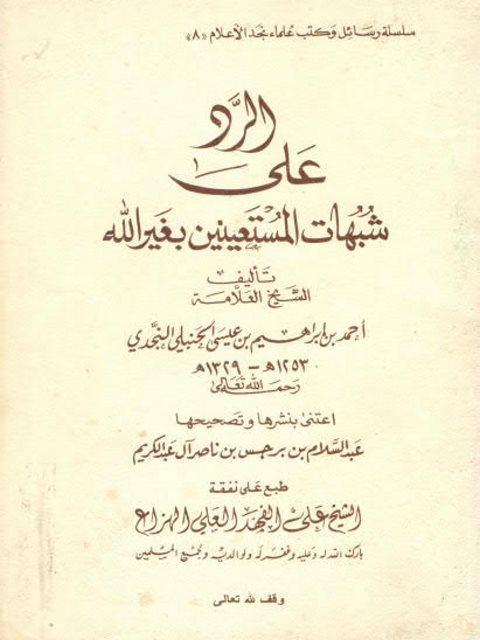 سلسلة رسائل وكتب علماء نجد الأعلام «٨»
الرَّد
عَلى
شُبُهات المُسْتَعِينين بغَير الله
تأليف
الشيخ العلامة
أحمد بن إبراهيم بن عيسى الحنبلي النجدي
١٢٥٣هـ - ١٣٢٩هـ
رحمه الله تعالى
اعتنى بنشرها وتصحيحها
عبد السلام بن برجس بن ناصر آل عبد الكريم
طبع على نفقة
الشيخ علي الفهد العلي الهزاع
بارك الله له وعليه وغفر له ولوالديه ولجميع المسلمين
وقف لله تعالى